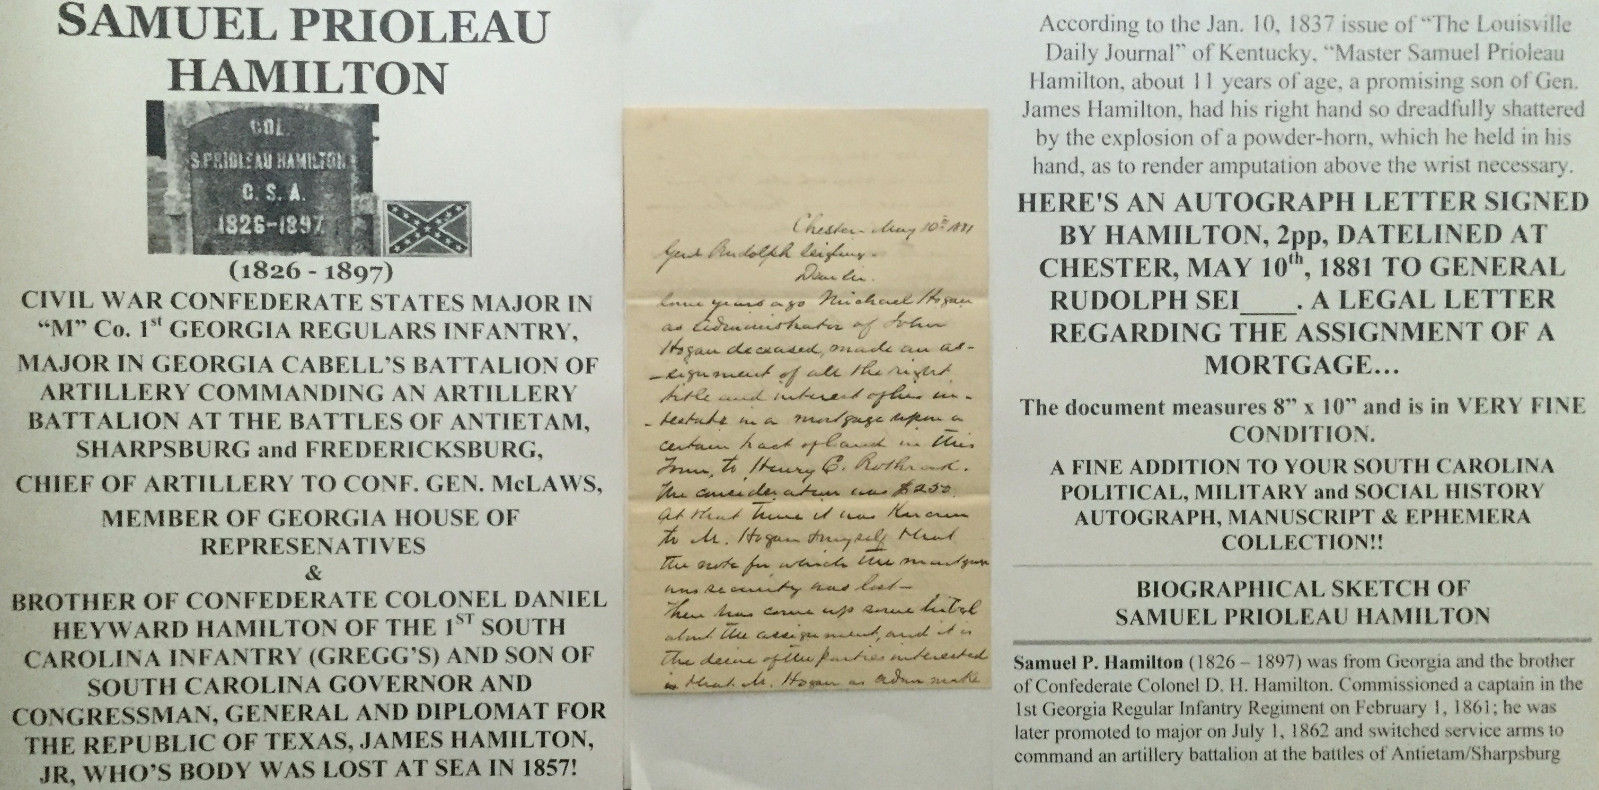 SAMUEL PRIOLEAU
HAMILTON
COL.
S. PRIOLEAU HAMILTON
C. S. A.
1826-1897
(1826 - 1897)
CIVIL WAR CONFEDERATE STATES MAJOR IN
“M” Co. 1st GEORGIA REGULARS INFANTRY,
MAJOR IN GEORGIA CABELL’S BATTALION OF
ARTILLERY COMMANDING AN ARTILLERY
BATTALION AT THE BATTLES OF ANTIETAM,
SHARPSBURG and FREDERICKSBURG,
CHIEF OF ARTILLERY TO CONF. GEN. McLAWS,
MEMBER OF GEORGIA HOUSE OF
REPRESENATIVES
&
BROTHER OF CONFEDERATE COLONEL DANIEL
HEYWARD HAMILTON OF THE 1ST SOUTH
CAROLINA INFANTRY (GREGG’S) AND SON OF
SOUTH CAROLINA GOVERNOR AND
CONGRESSMAN, GENERAL AND DIPLOMAT FOR
THE REPUBLIC OF TEXAS, JAMES HAMILTON,
JR, WHO’S BODY WAS LOST AT SEA IN 1857!
Chester May 10th 1881
Genl Rudolph
Dear Sir.
Some years ago Michael Hogan
as Administrator of John
Hogan deceased, made an as-
-signment of all the right
title and interest of his in-
-testate in a mortgage upon a
certain tract of land in this
Town, to Henry C. Rothrock.
The consideration was $250.
At that time it was known
to M. Hogan & myself that
the note for which the mortgage
was security was lost—
There has come up some
about the assignment, and it is
the desire of the parties interested
is that M. Hogan as admr make
According to the Jan. 10, 1837 issue of “The Louisville
Daily Journal” of Kentucky, “Master Samuel Prioleau
Hamilton, about 11 years of age, a promising son of Gen.
James Hamilton, had his right hand so dreadfully shattered
by the explosion of a powder-horn, which he held in his
hand, as to render amputation above the wrist necessary.
HERE'S AN AUTOGRAPH LETTER SIGNED
BY HAMILTON, 2pp, DATELINED AT
CHESTER, MAY 10th, 1881 TO GENERAL
RUDOLPH SEI____. A LEGAL LETTER
REGARDING THE ASSIGNMENT OF A
MORTGAGE...
The document measures 8” x 10” and is in VERY FINE
CONDITION.
A FINE ADDITION TO YOUR SOUTH CAROLINA
POLITICAL, MILITARY and SOCIAL HISTORY
AUTOGRAPH, MANUSCRIPT & EPHEMERA
COLLECTION!!
BIOGRAPHICAL SKETCH OF
SAMUEL PRIOLEAU HAMILTON
Samuel P. Hamilton (1826 – 1897) was from Georgia and the brother
of Confederate Colonel D. H. Hamilton. Commissioned a captain in the
1st Georgia Regular Infantry Regiment on February 1, 1861; he was
later promoted to major on July 1, 1862 and switched service arms to
command an artillery battalion at the battles of Antietam/Sharpsburg